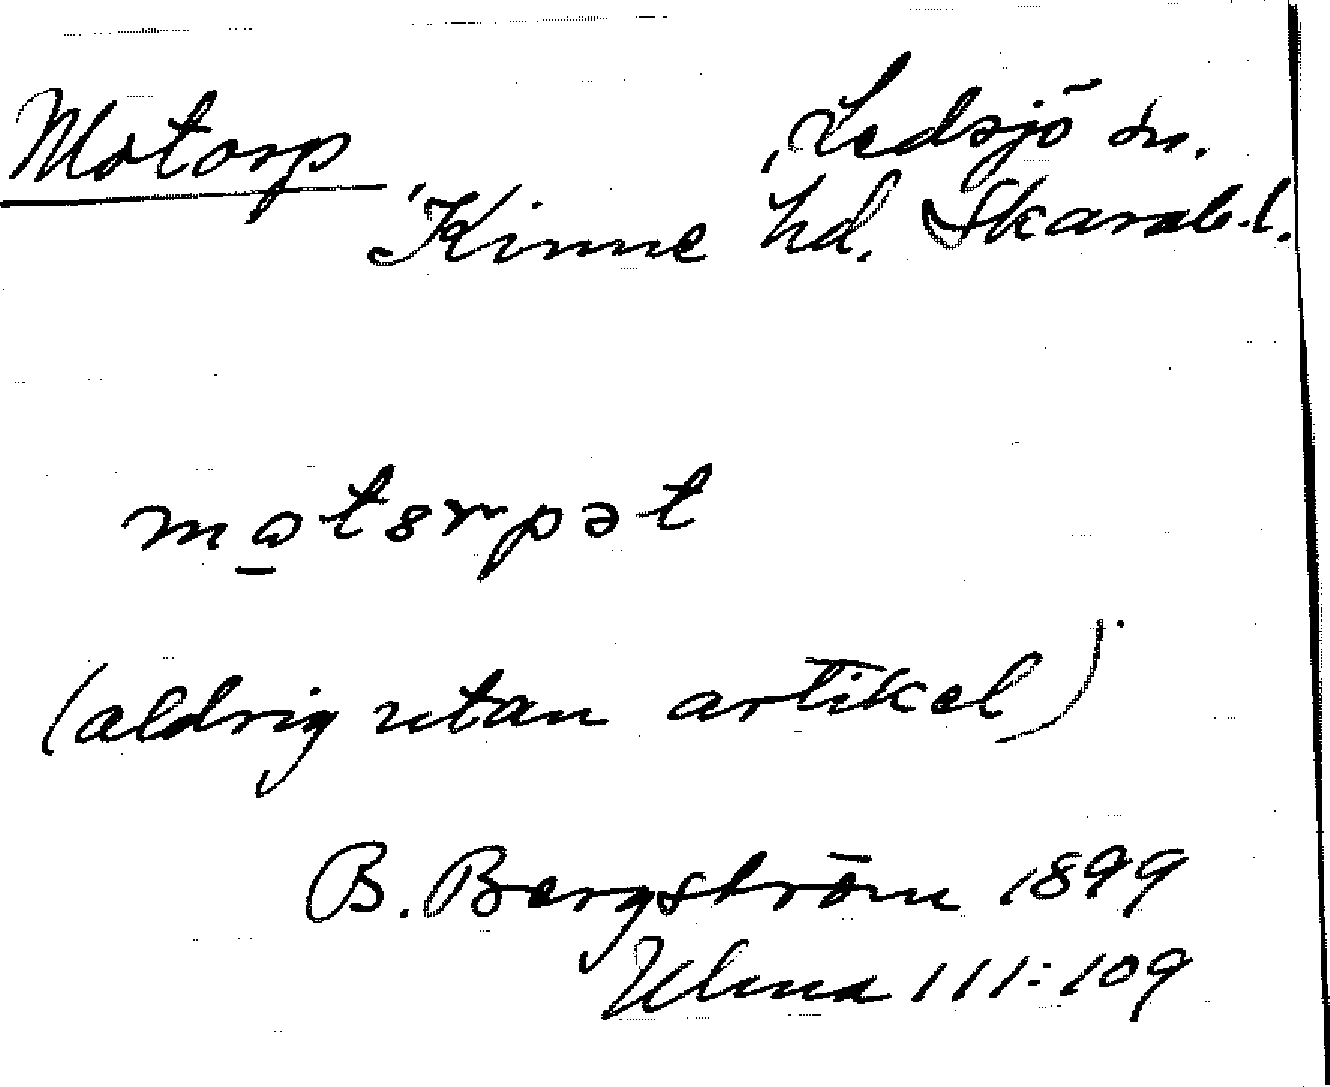 Motorp
Ledsjö sn.
Kinne hd. Skarab.l.
mɷ̲tsrpət
(aldrig utan artikel)
B. Bergström 1899
Ulma 111:109